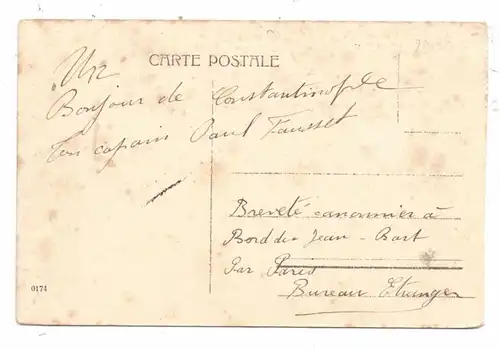 CARTE POSTALE
Un
Bonjour de Constantinople
Ton copain Paul Fausset
Breveté canonnier à
Bord du Jean-Bart
Par Paris
Bureau Etranger
0174